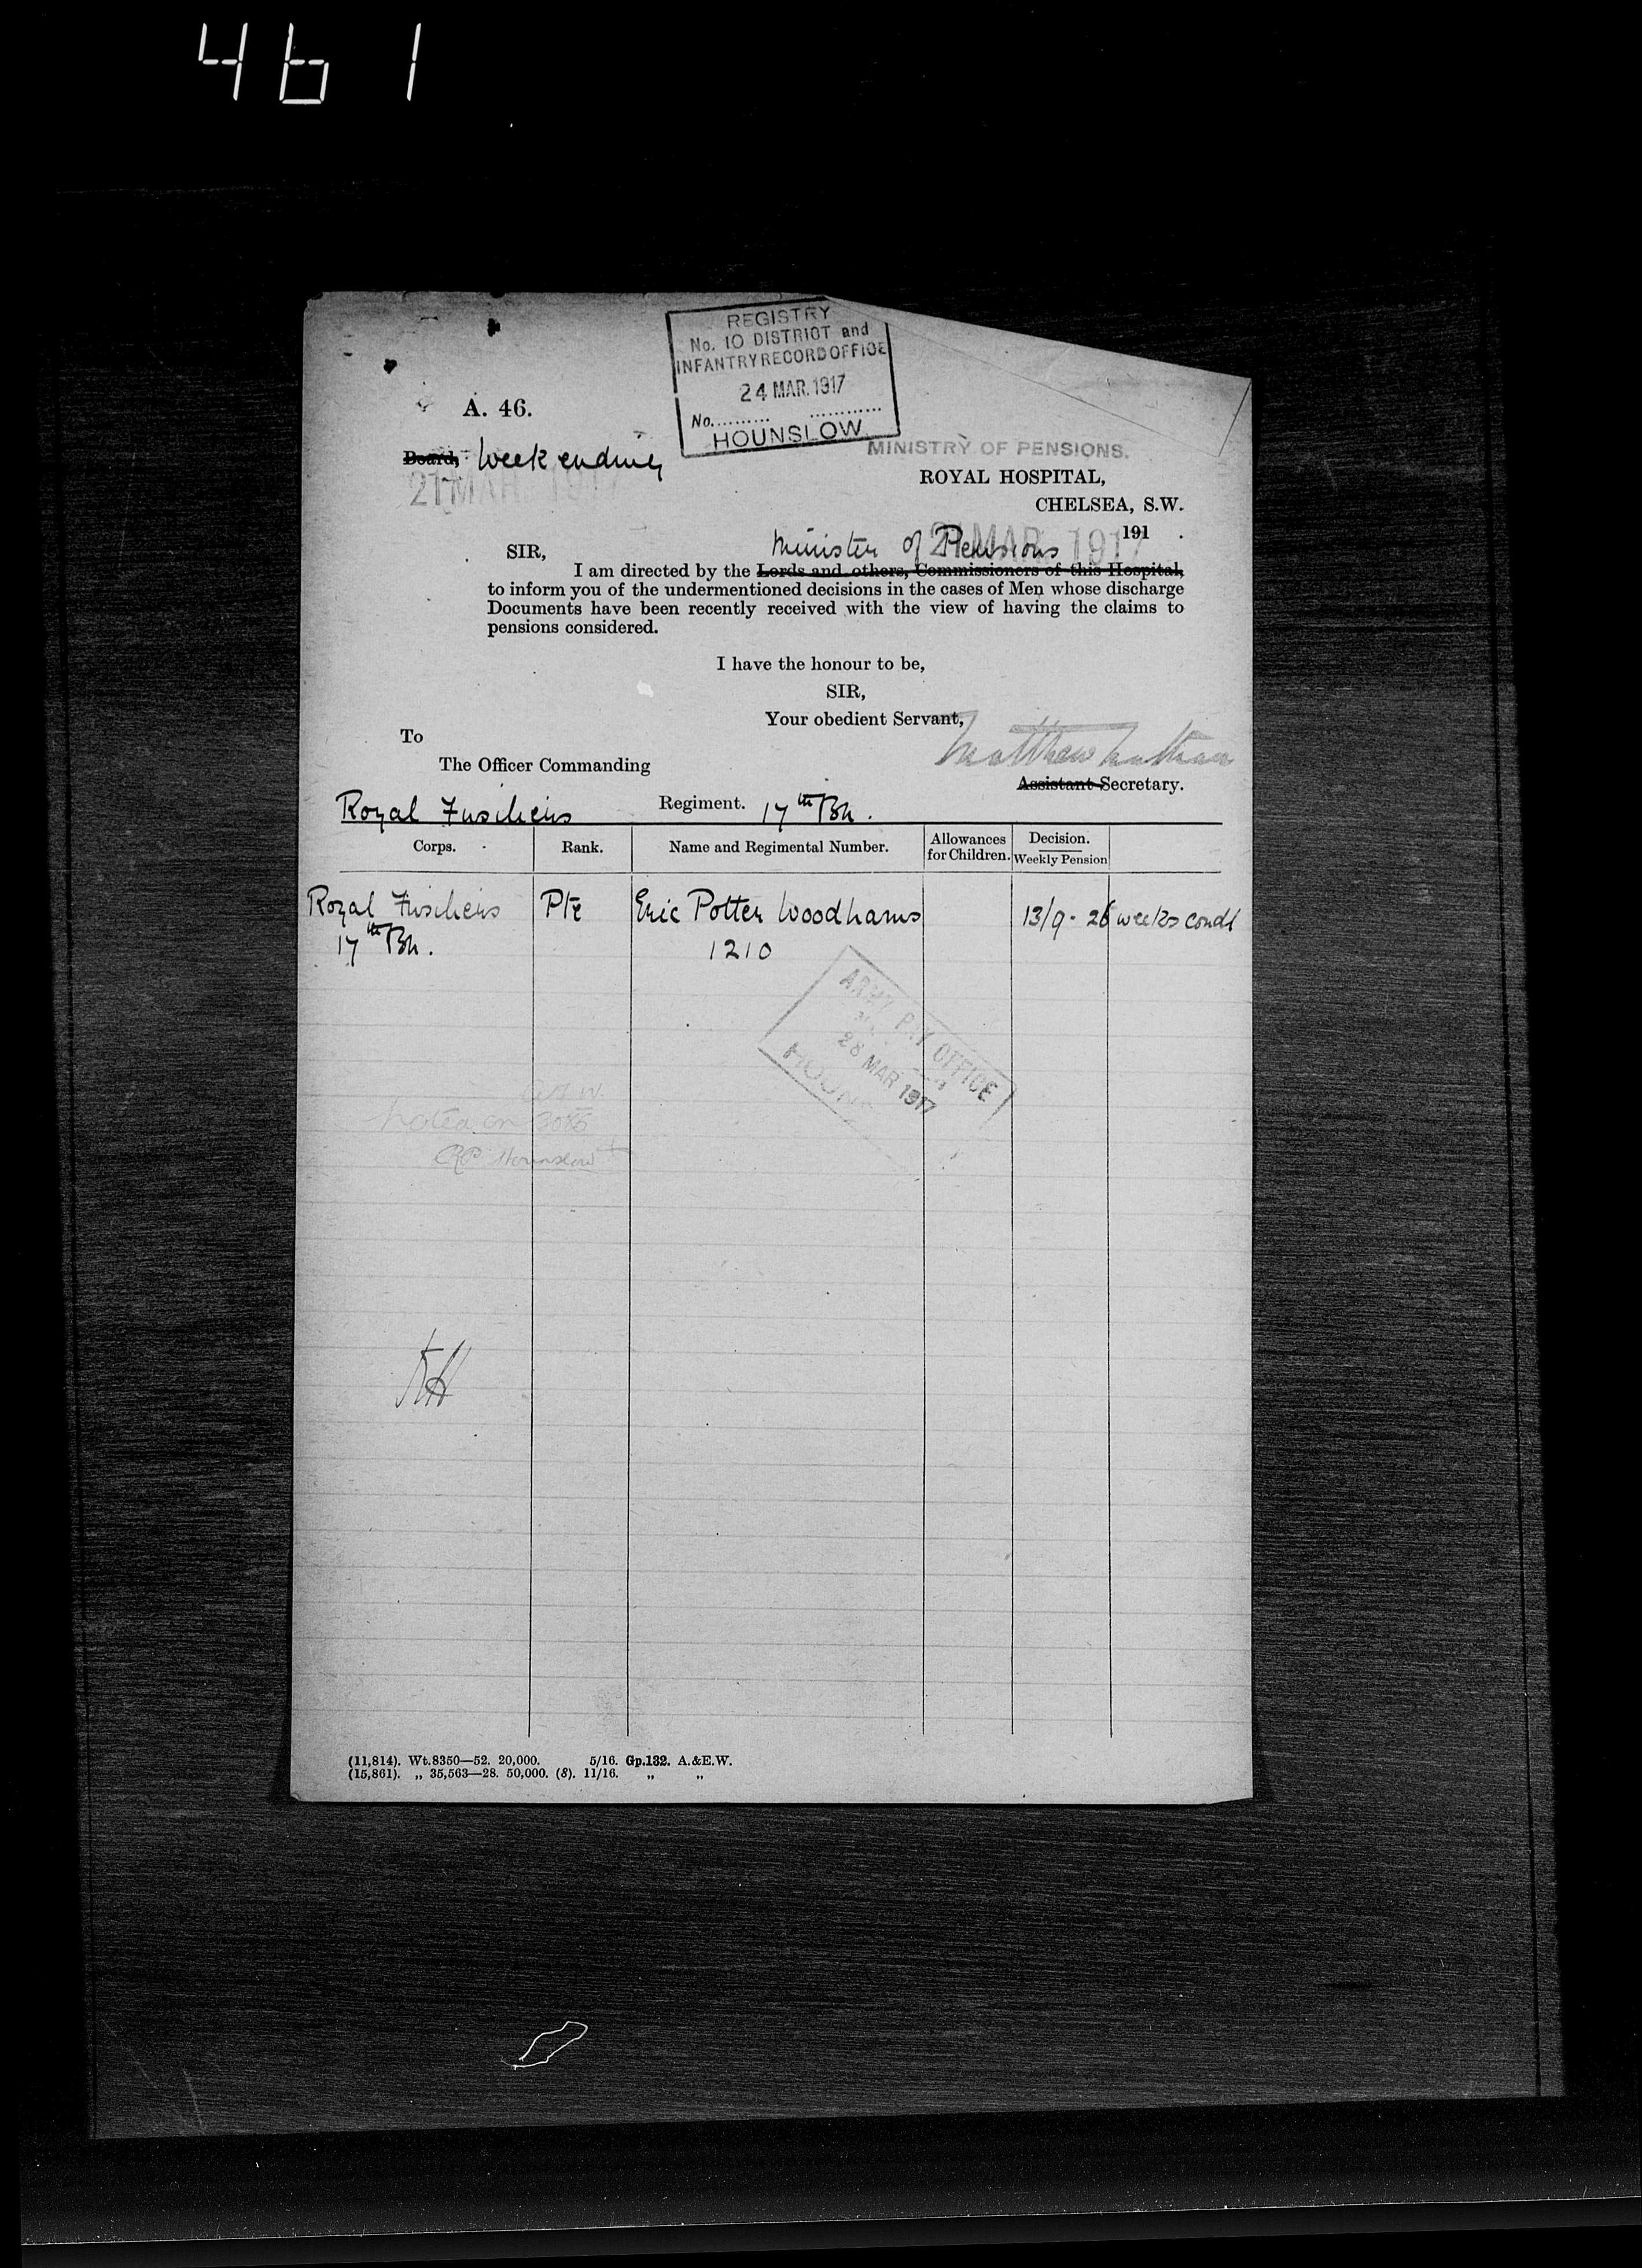 461
REGISTRY
No. 10 DISTRICT and
INFANTRY RECORD OFFICE
24 MAR. 1917
No.......... ............
HOUNSLOW
A. 46.
Board, Week ending
21 MAR 1917
MINISTRY OF PENSIONS.
ROYAL HOSPITAL,
CHELSEA, S.W.
21 MAR 1917 191 .
SIR,
Minister of Pensions
I am directed by the Lords and others, Commissioners of this Hospital,
to inform you of the undermentioned decisions in the cases of Men whose discharge
Documents have been recently received with the view of having the claims to
pensions considered.
I have the honour to be,
SIR,
Your obedient Servant,
Matthew Nathan
Assistant Secretary.
To
The Officer Commanding
Royal Fusiliers Regiment. 17th Bn.
Corps. Rank. Name and Regimental Number. Allowances for Children. Decision. Weekly Pension
Royal Fusiliers Pte Eric Potter Woodhams 13/9 - 26 weeks condl
17th Bn. 1210
ARMY PAY OFFICE
28 MAR 1917
HOUN
Noted on
Hounslow
(11,814). Wt.8350—52. 20,000. 5/16. Gp.132. A.&E.W.
(15,861). „ 35,563—28. 50,000. (8). 11/16. „ „